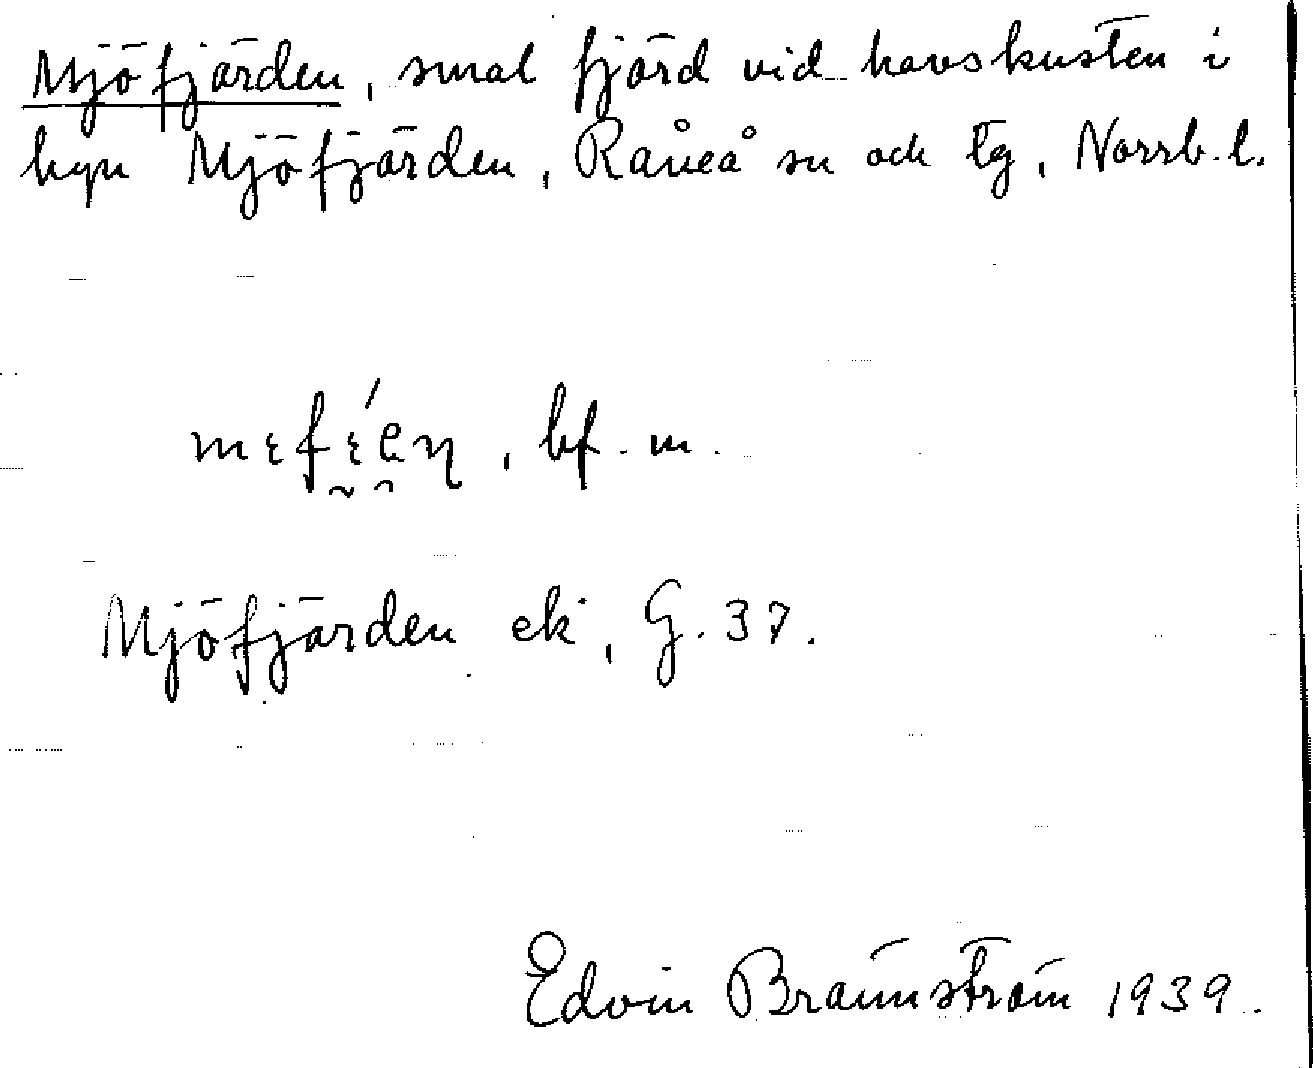 Mjöfjärden, smal fjärd vid havskusten i
byn Mjöfjärden, Råneå sn och tg, Norrb. l.
bf. m.
Mjöfjärden ek, G. 37.
Edvin Brännström 1939.